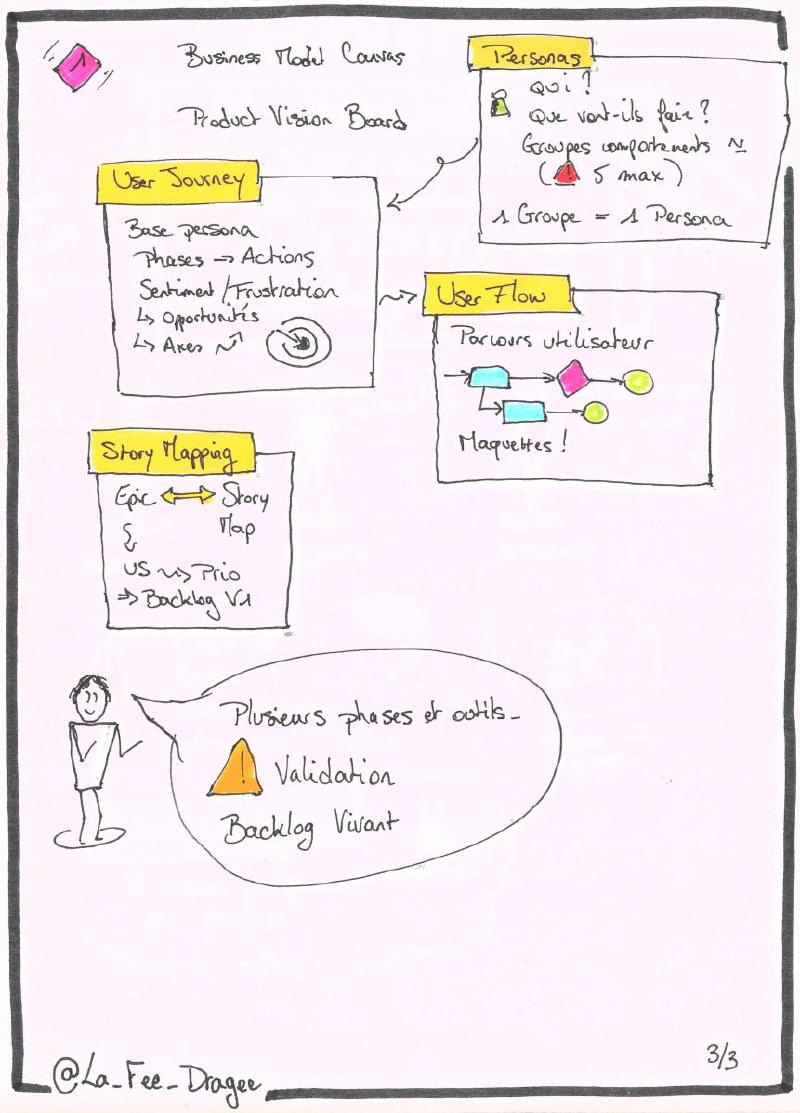 1
Business Model Canvas
Product Vision Board
Personas
Qui ?
Que vont-ils faire ?
Groupes comportements ~
(! 5 max)
1 Groupe = 1 Persona
User Journey
Base persona
Phases → Actions
Sentiment / Frustration
↳ Opportunités
↳ Axes
User Flow
Parcours utilisateur
Maquettes !
Story Mapping
Epic ↔ Story
Map
US → Prio
⇒ Backlog V1
Plusieurs phases et outils_
! Validation
Backlog Vivant
3/3
@La_Fee_Dragee